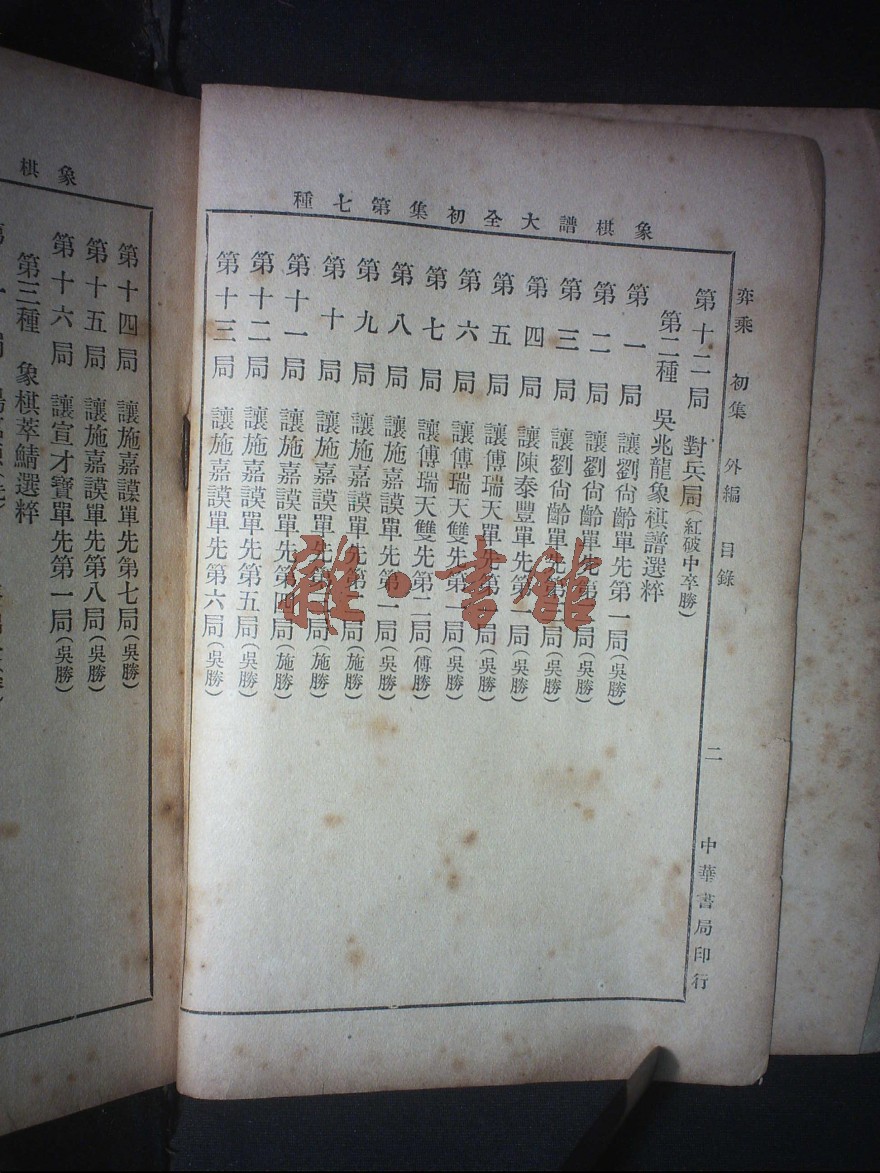 象棋譜大全初集第七種
弈乘 初集 外編 目錄 二 中華書局印行
第十二局 對兵局(紅破中卒勝)
第二種 吳兆龍象棋譜選粹
第一局 讓劉尙齡單先第一局(吳勝)
第二局 讓劉尙齡單先第二局(吳勝)
第三局 讓劉尙齡單先第三局(吳勝)
第四局 讓陳泰豐單先第一局(吳勝)
第五局 讓傅瑞天單先第一局(吳勝)
第六局 讓傅瑞天雙先第一局(吳勝)
第七局 讓傅瑞天雙先第二局(傅勝)
第八局 讓施嘉謨單先第一局(吳勝)
第九局 讓施嘉謨單先第二局(施勝)
第十局 讓施嘉謨單先第三局(施勝)
第十一局 讓施嘉謨單先第四局(施勝)
第十二局 讓施嘉謨單先第五局(吳勝)
第十三局 讓施嘉謨單先第六局(吳勝)
象棋
第十四局 讓施嘉謨單先第七局(吳勝)
第十五局 讓施嘉謨單先第八局(吳勝)
第十六局 讓宣才寶單先第一局(吳勝)
第三種 象棋萃鯖選粹
雜·書館